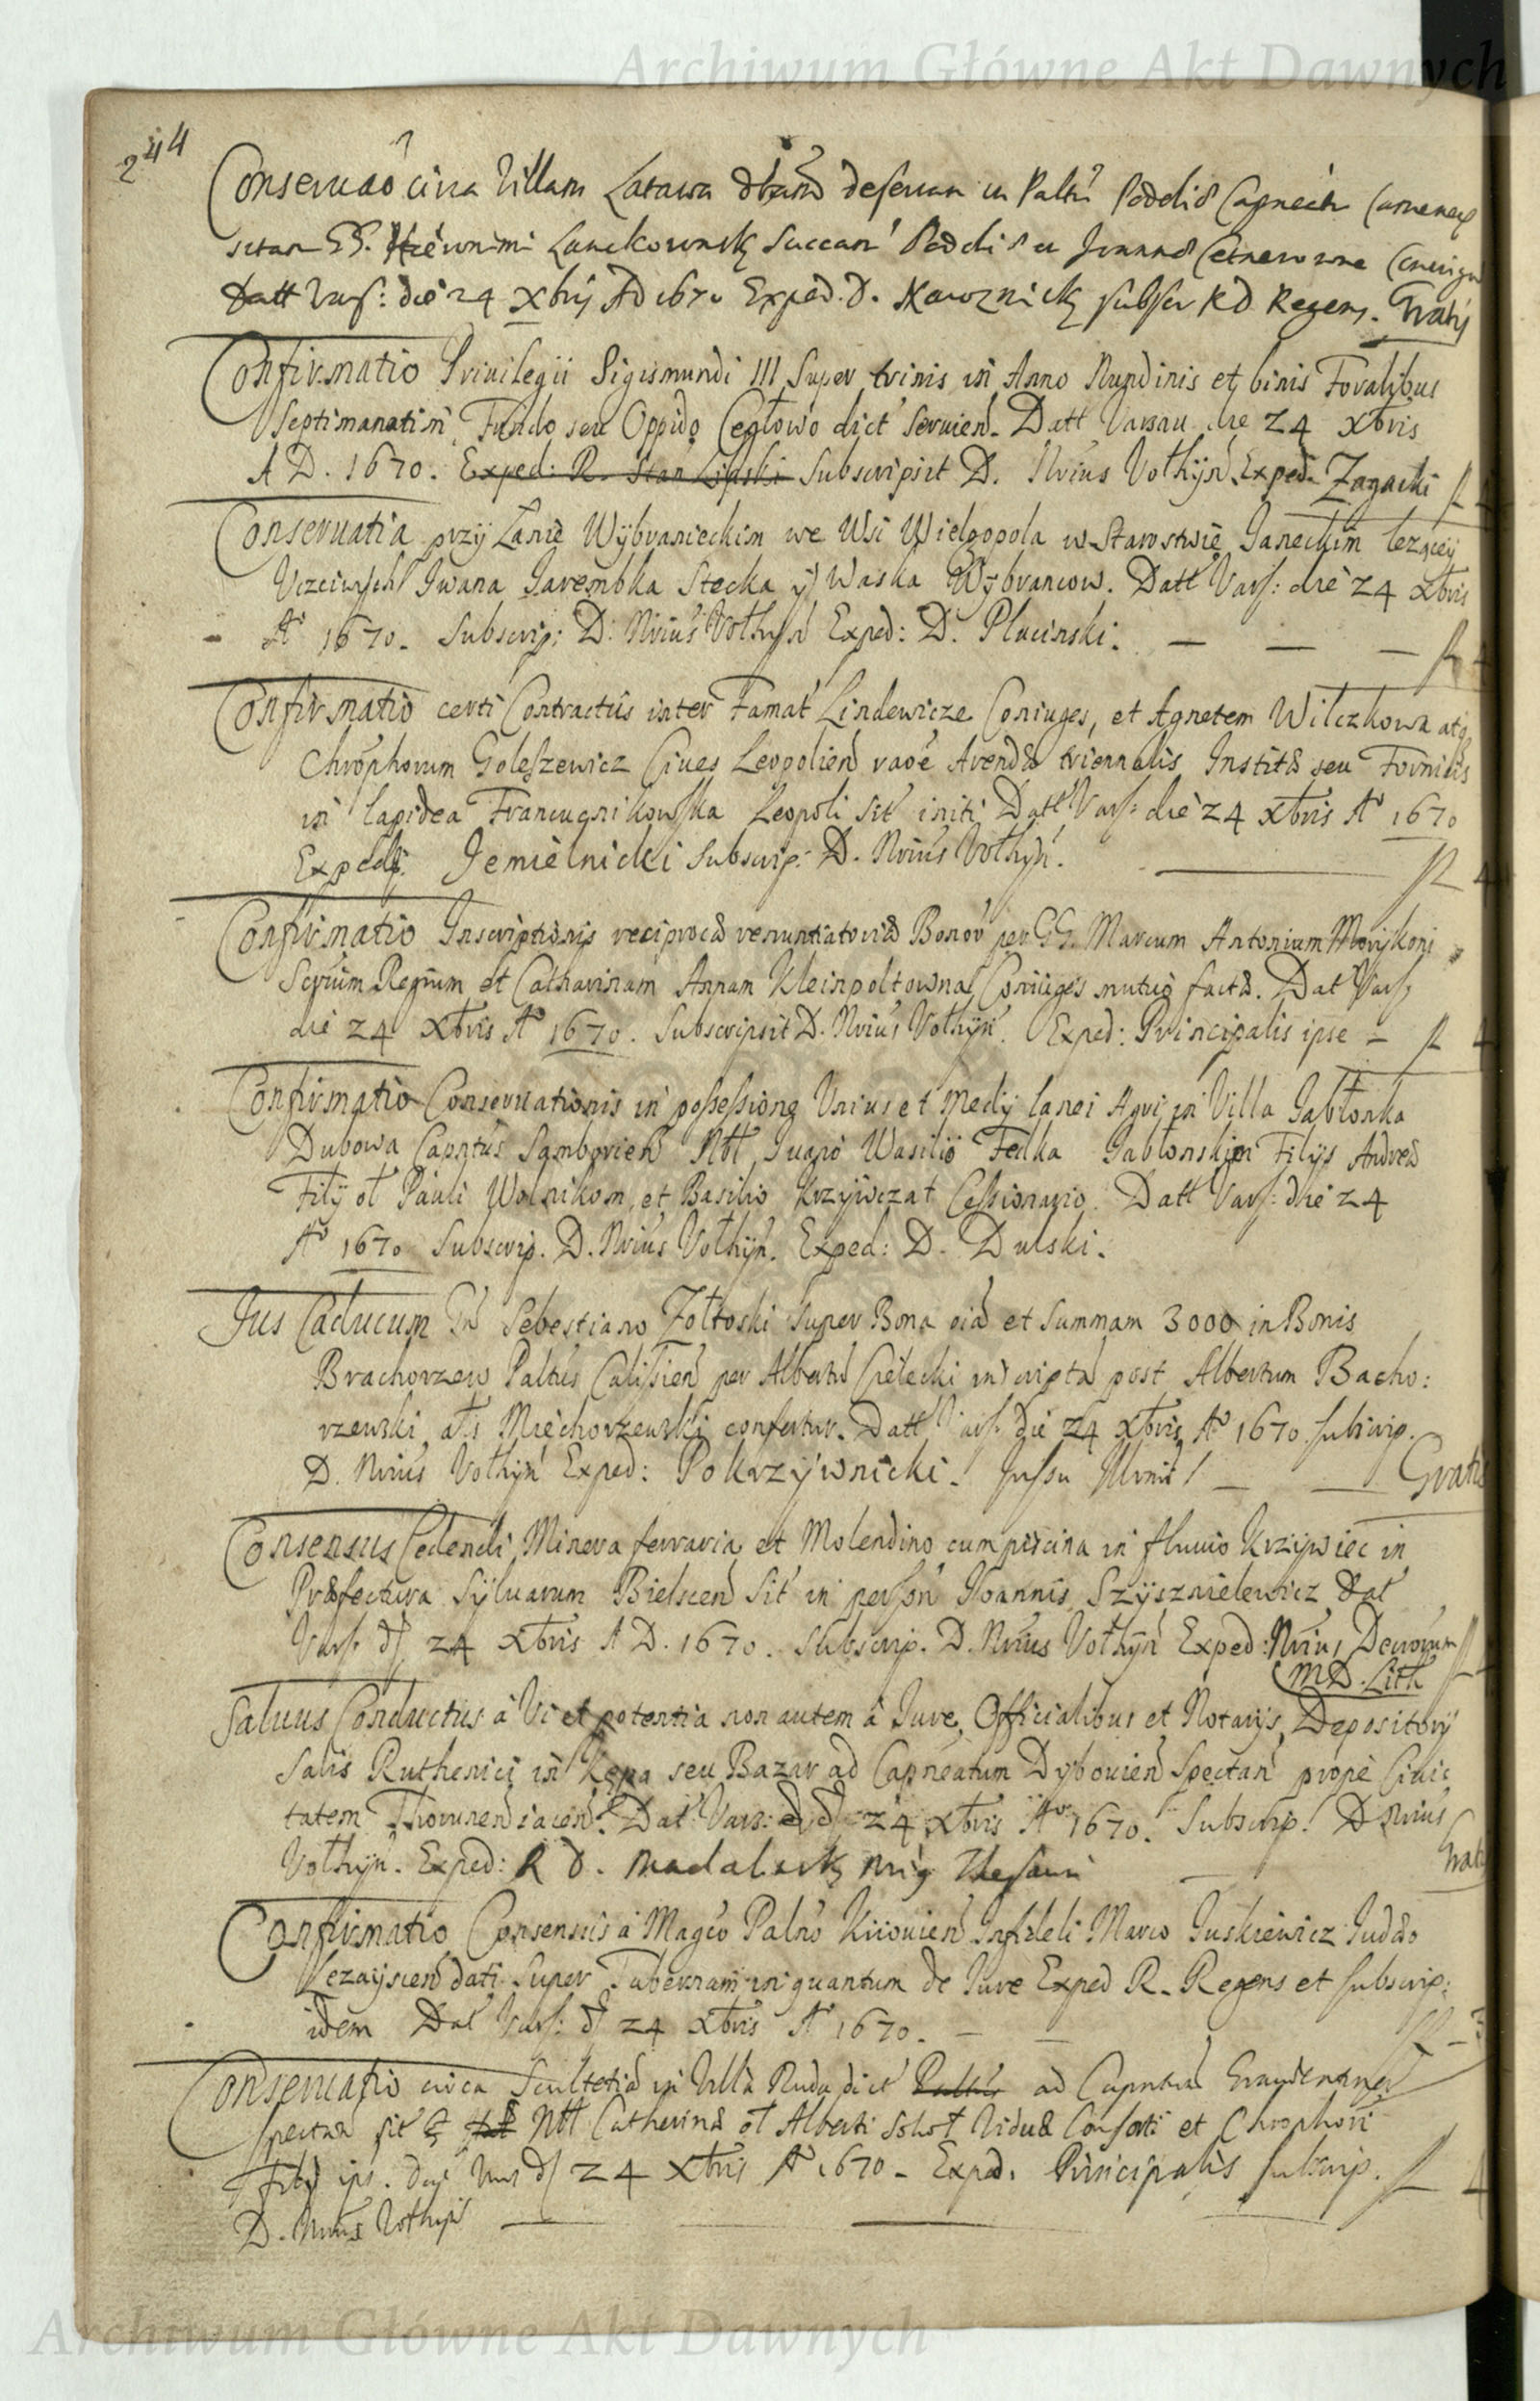 Archiwum Główne Akt Dawnych
244
Conseruao circa Villam Latawa deseruan in Paltu Podolis Capneatu
Succan Podolis
Datt Vars: die 24 Xbris AD 1670 Exped. D. subscr RD Regens. Gratis
Confirmatio Priuilegii Sigismundi III Super trinis in Anno Nundinis et binis Foralibus
Septimanatim Fundo seu Oppido Cegłowo dict seruien. Datt Varsau die 24 Xbris
A D. 1670. Exped: R. Stan Lipski Subscripsit D. Nrius Vołhyn. Exped. Zagacki
Conseruatia przy Łanie Wybranieckim we Wsi Wielgopola w Starostwie Janeckim lezącey
Vczciwych Iwana Jarembka Stecka y Waska Wybrancow. Datt Vars: die 24 Xbris
Aº 1670. Subscrip: D. Nrius Vołhyn Exped: D. Plucinski.
Confirmatio certi Contractus inter Famat Lindewicze Coniuges, et Agnetem Wilczkowa atq
Chrophorum Goleszewicz Ciues Leopolien raoe Arendæ triennalis Institæ seu Fornicis
in lapidea Leopoli sit initi Datt Vars: die 24 Xbris Aº 1670
Exped: Jemielnicki Subscrip: D. Nrius Vołhyn.
Confirmatio Inscriptionis reciprocæ renuntiatoriæ Bonor per GG. Marcum Antonium
Regium et Catharinam Annam Kleinpoltowna Coniuges mutuo factæ. Dat Vars,
die 24 Xbris Aº 1670. Subscripsit D. Nrius Vołhyn. Exped: Principalis ipse
Confirmatio Conseruationis in possessione Vnius et Medij lanei Agri in Villa Jabłonka
Dubowa Capntus Samborien Nbl Iuano Wasilio Fedka Jabłonskim Filijs Andreæ
Filij ol Pauli Wolnikom, et Basilio Krzywczat Cessionario. Datt Vars: die 24
Aº 1670 Subscrip. D. Nrius Vołhyn. Exped: D. Dulski.
Jus Caducum Gd Sebestiano Zołtoski Super Bona oia et Summam 3000 in Bonis
Brachorzew Paltus Calisien per Albertu Cielecki inscripta post Albertum Bacho:
rzewski als Miechorzewski confertur. Datt Vars: die 24 Xbris Aº 1670 subscrip.
D. Nrius Vołhyn Exped: Pokrzywnicki. Jussu Gratis
Consensus Cedendi Minera ferraria et Molendino cum piscina in fluuio Krzywiec in
Præfectura Syluarum Bielscen sit in person Joannis Szyszmielewicz Dat
Vars. d 24 Xbris A D. 1670. Subscrip. D. Nrius Vołhyn Exped: Nrius Decrorum
M D. Lith
Saluus Conductus a Vi et potentia non autem a Jure, Officialibus et Notarijs Depositorij
Salis Ruthenici in Kępa seu Bazar ad Capneatum Dybouien Spectan prope Ciuic
tatem Thorunen iacen. Dat Vars: d 24 Xbris Aº 1670. Subscrip. D Nrius
Vołhyn. Exped: R D. Thesauri Gratis
Confirmatio Consensus a Magco Palno Kiiouien Infideli Marco Juskiewicz Judæo
dati Super Tabernam in quantum de Jure Exped R. Regens et subscrip:
idem Dat Vars: d 24 Xbris Aº 1670.
Conseruatio circa Scultetia in Villa Ruda dict Paltu ad Capntum
spectan sit Nbl Catherinæ ol Alberti Viduæ Consorti et Chrophori
Filij ips. d 24 Xbris Aº 1670. Exped. Principalis subscrip.
D. Nrius Vołhyn
Archiwum Główne Akt Dawnych